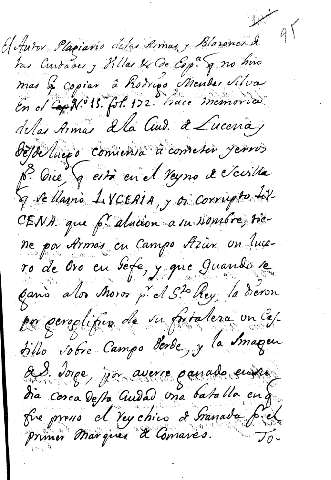 95
El Autor Plagiario de las Armas, y Blasones de
las Ciudades y Villas &c de Espª q no hizo
mas q copiar à Rodrigo Mendes Silva
en el Nº 15. fol. 172. hace memoria
de las Armas de la Ciud. de Lucena,
desde luego comiensa à cometer yerros
pr. Dice, q està en el Reyno de Sevilla
q se llamò LVCERIA, y oi corrupto LU-
CENA que pr. alucion a su nombre, tie-
ne por Armas en Campo Azur un luze-
ro de Oro en Gefe, y que Quando se
ganò a los Moros pr. el Sto. Rey, la dieron
por geroglifico de su fortaleza un Cas-
tillo sobre Campo Verde, y la Imagen
de S. Jorge, por averse ganado en su
dia cerca desta Ciudad una batalla en q
fue preso el Rey chico de Granada pr. el
primer Marques de Comares.
To-